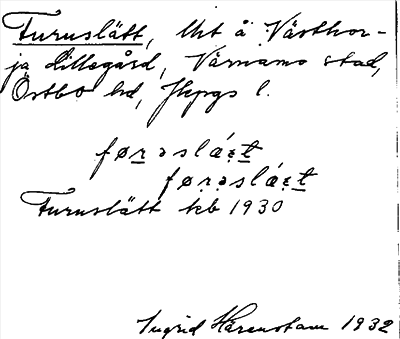 Furuslätt, lht å Västhor-
ja Lillegård, Värnamo stad,
Östbo hd, Jkpgs l.
førəslǽt
førəslǽt
Furuslätt kb 1930
Ingrid Härenstam 1932